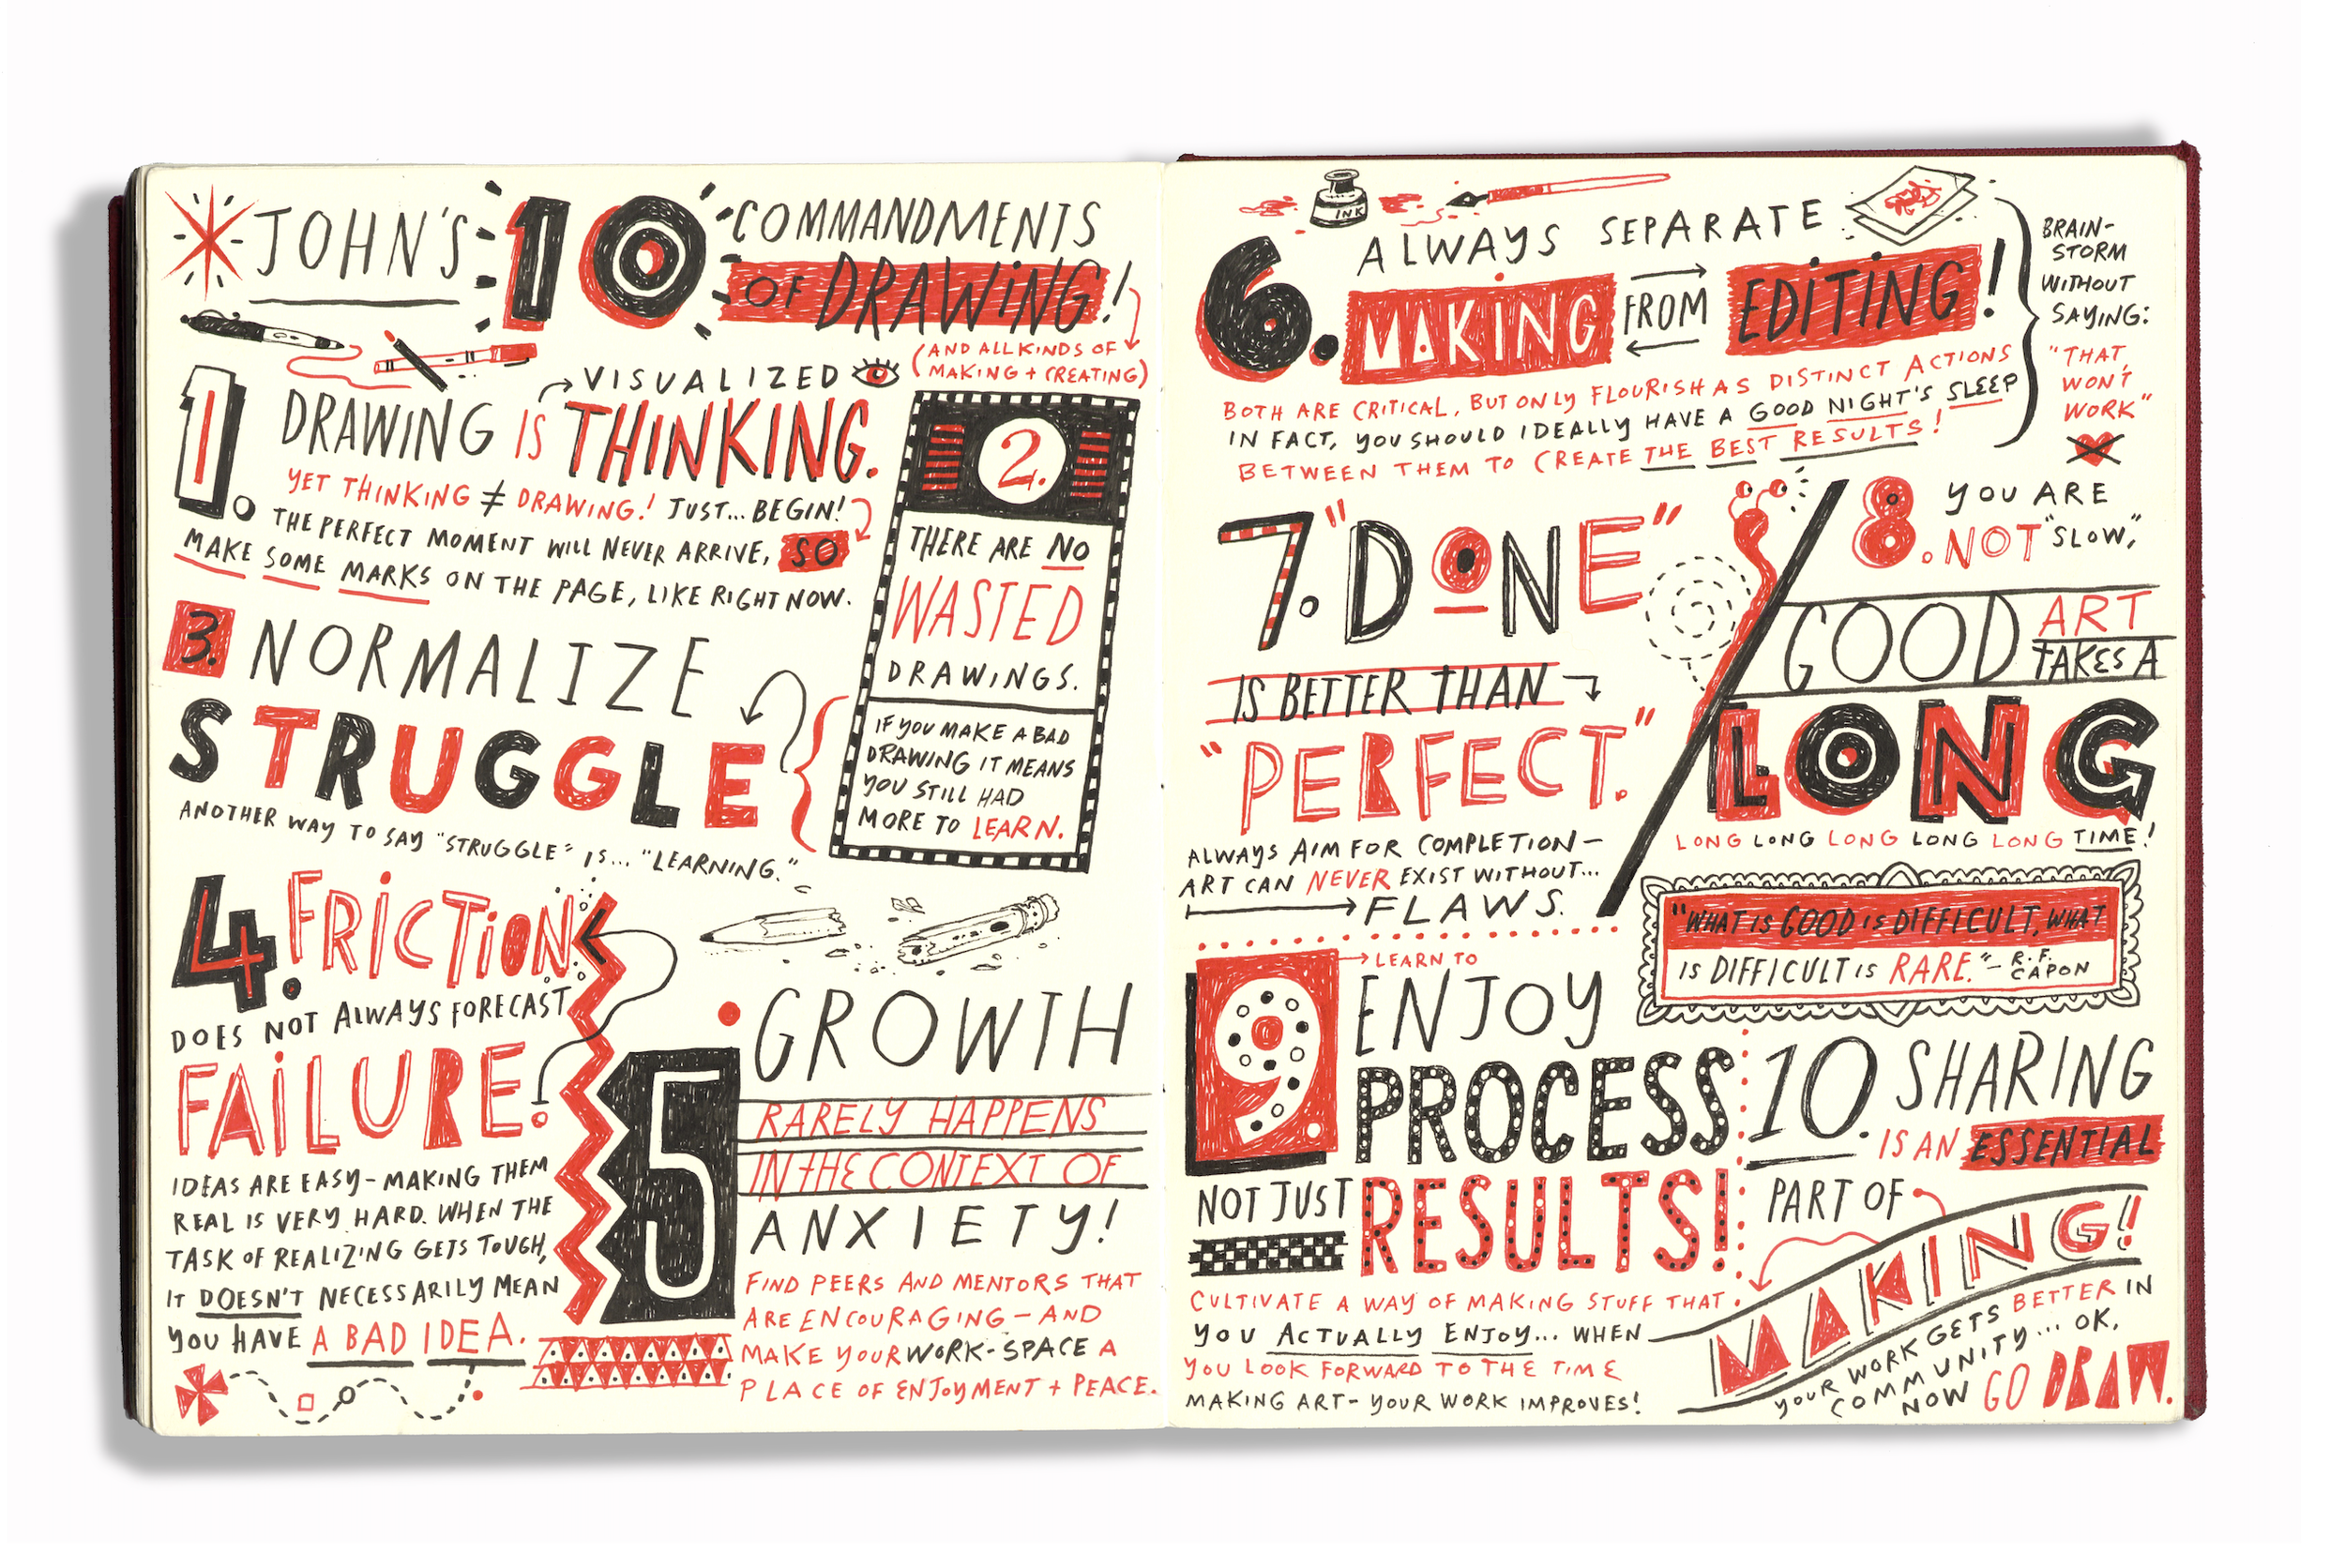 JOHN'S 10 COMMANDMENTS
OF DRAWING!
(AND ALL KINDS OF
MAKING + CREATING)
1. DRAWING IS VISUALIZED THINKING.
YET THINKING ≠ DRAWING! JUST... BEGIN!
THE PERFECT MOMENT WILL NEVER ARRIVE, SO
MAKE SOME MARKS ON THE PAGE, LIKE RIGHT NOW.
2.
THERE ARE NO
WASTED
DRAWINGS.
IF YOU MAKE A BAD
DRAWING IT MEANS
YOU STILL HAD
MORE TO LEARN.
3. NORMALIZE
STRUGGLE
ANOTHER WAY TO SAY "STRUGGLE" IS... "LEARNING."
4. FRICTION
DOES NOT ALWAYS FORECAST
FAILURE.
IDEAS ARE EASY - MAKING THEM
REAL IS VERY HARD. WHEN THE
TASK OF REALIZING GETS TOUGH,
IT DOESN'T NECESSARILY MEAN
YOU HAVE A BAD IDEA.
5. GROWTH
RARELY HAPPENS
IN THE CONTEXT OF
ANXIETY!
FIND PEERS AND MENTORS THAT
ARE ENCOURAGING - AND
MAKE YOUR WORK-SPACE A
PLACE OF ENJOYMENT + PEACE.
INK
6. ALWAYS SEPARATE
MAKING FROM EDITING!
BOTH ARE CRITICAL, BUT ONLY FLOURISH AS DISTINCT ACTIONS
IN FACT, YOU SHOULD IDEALLY HAVE A GOOD NIGHT'S SLEEP
BETWEEN THEM TO CREATE THE BEST RESULTS!
BRAIN-
STORM
WITHOUT
SAYING:
"THAT
WON'T
WORK"
7. "DONE"
IS BETTER THAN
"PERFECT."
ALWAYS AIM FOR COMPLETION -
ART CAN NEVER EXIST WITHOUT...
FLAWS.
8. YOU ARE
NOT "SLOW,"
GOOD ART
TAKES A
LONG
LONG LONG LONG LONG LONG TIME!
"WHAT IS GOOD IS DIFFICULT, WHAT
IS DIFFICULT IS RARE." - R.F.
CAPON
9 LEARN TO
ENJOY
PROCESS
NOT JUST RESULTS!
CULTIVATE A WAY OF MAKING STUFF THAT
YOU ACTUALLY ENJOY... WHEN
YOU LOOK FORWARD TO THE TIME
MAKING ART - YOUR WORK IMPROVES!
10. SHARING
IS AN ESSENTIAL
PART OF
MAKING!
YOUR WORK GETS BETTER IN
COMMUNITY... OK,
NOW GO DRAW.